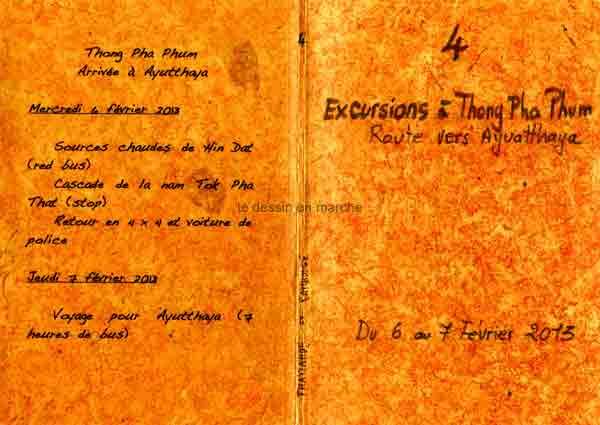 Thong Pha Phum
Arrivée à Ayutthaya
Mercredi 6 février 2013
Sources chaudes de Hin Dat
(red bus)
Cascade de la nam Tok Pha
That (stop)
Retour en 4 x 4 et voiture de
police
Jeudi 7 février 2013
Voyage pour Ayutthaya (7
heures de bus)
4
THAILANDE ET CAMBODGE
4
Excursions à Thong Pha Phum
Route vers Ayuatthaya
Du 6 au 7 Février 2013
le dessin en marche